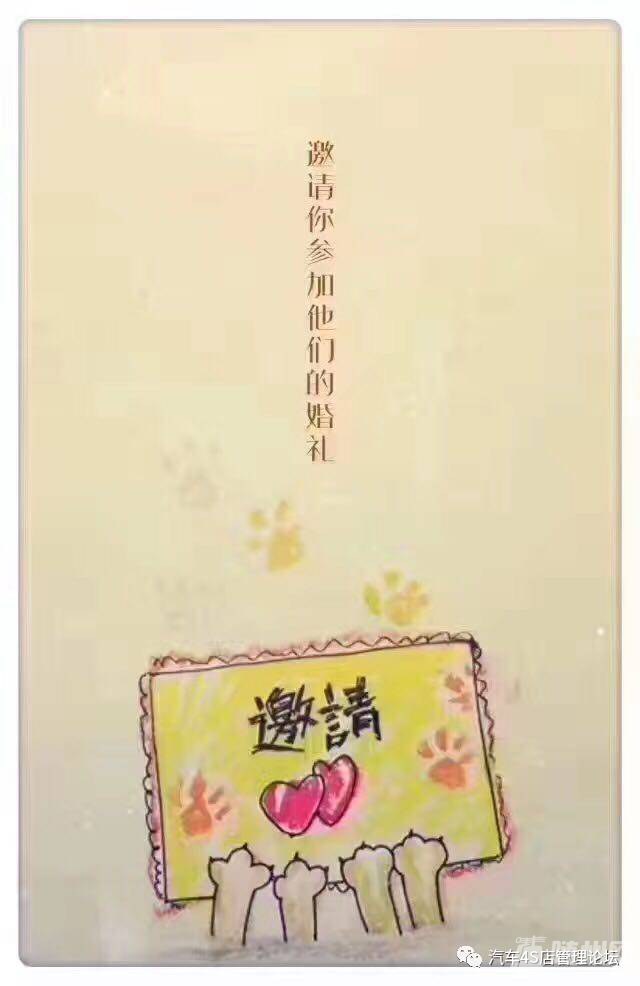 邀请你参加他们的婚礼
邀請
汽车4S店管理论坛